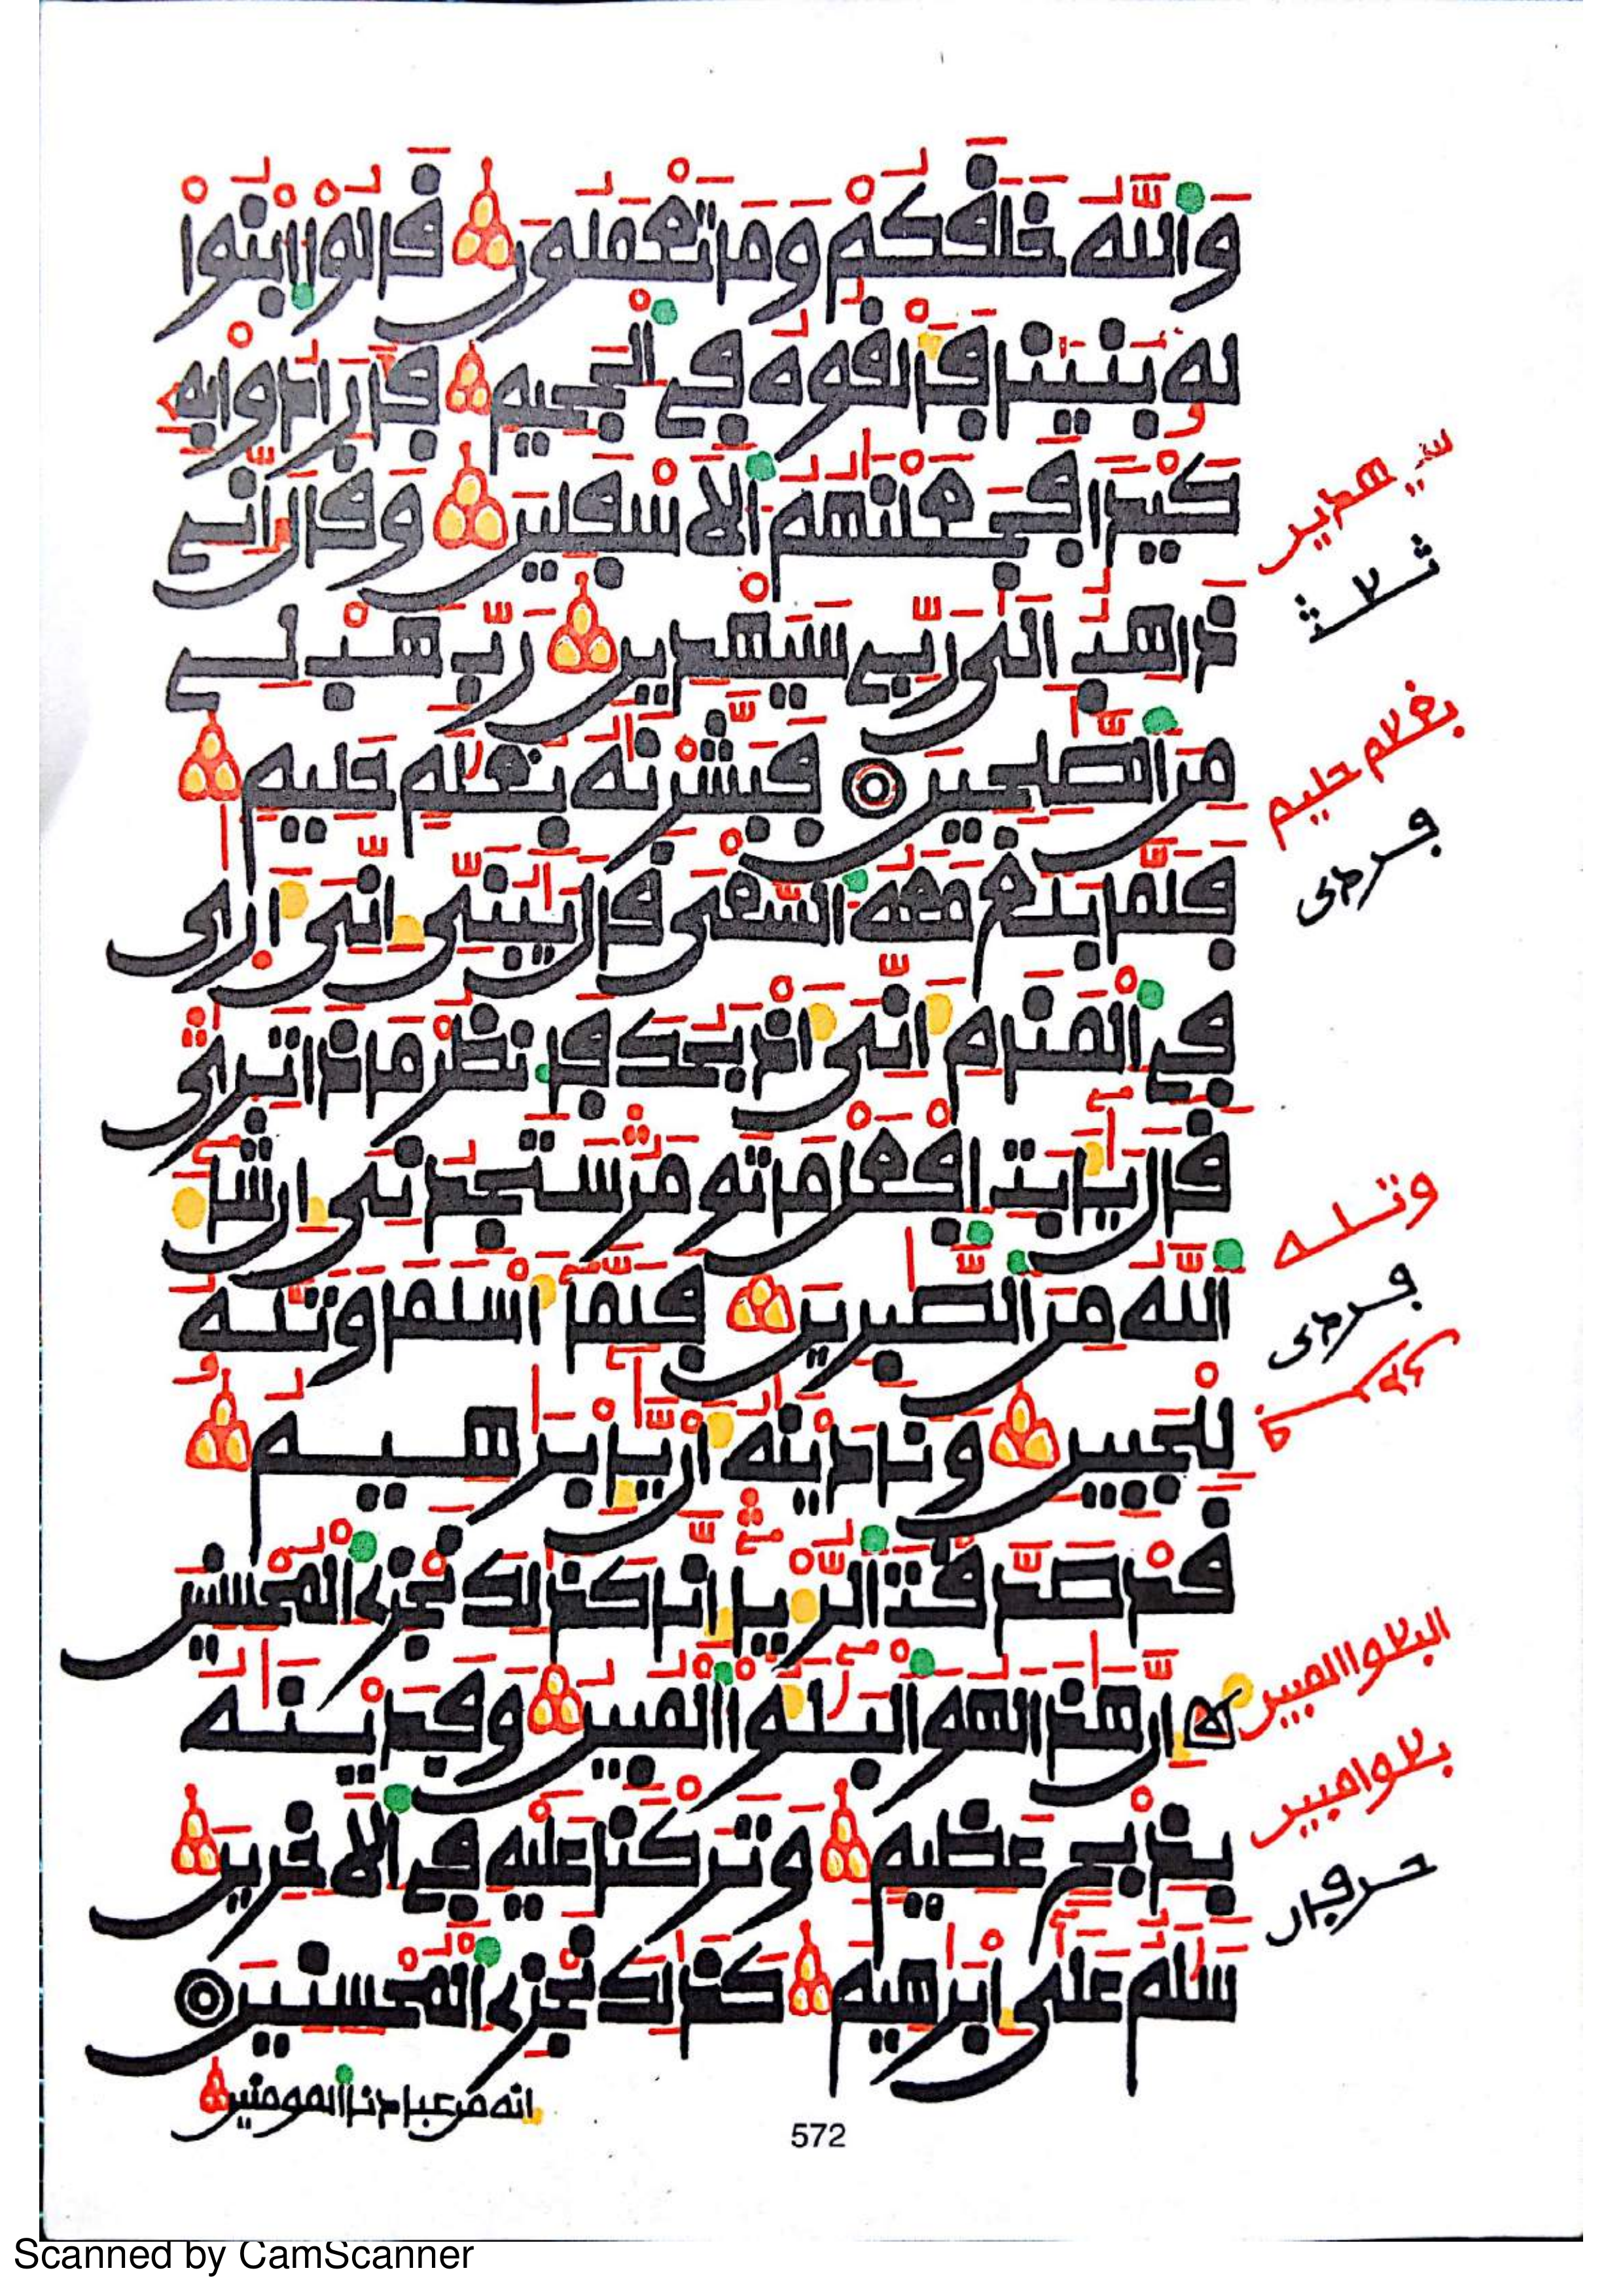 وَاللَّهُ خَلَقَكُمْ وَمَا تَعْمَلُونَ قَالُوا ابْنُوا
لَهُ بُنْيَنًا فَأَلْقُوهُ فِي الْجَحِيمِ فَأَرَادُوا بِهِ
كَيْدًا فَجَعَلْنَهُمُ الْأَسْفَلِينَ وَقَالَ إِنِّي
ذَاهِبٌ إِلَى رَبِّي سَيَهْدِينِ رَبِّ هَبْ لِي
مِنَ الصَّلِحِينَ فَبَشَّرْنَهُ بِغُلَمٍ حَلِيمٍ
فَلَمَّا بَلَغَ مَعَهُ السَّعْيَ قَالَ يَبُنَيِّ إِنِّيَ أَرَى
فِي الْمَنَامِ أَنِّيَ أَذْبَحُكَ فَانظُرْ مَاذَا تَرَى
قَالَ يَأَبَتِ افْعَلْ مَا تُومَرُ سَتَجِدُنِيَ إِن شَاءَ
اللَّهُ مِنَ الصَّبِرِينَ فَلَمَّا أَسْلَمَا وَتَلَّهُ
لِلْجَبِينِ وَنَادَيْنَهُ أَن يَإِبْرَهِيمُ
قَدْ صَدَّقْتَ الرُّءْيَا إِنَّا كَذَلِكَ نَجْزِي الْمُحْسِنِينَ
إِنَّ هَذَا لَهُوَ الْبَلَؤُا الْمُبِينُ وَفَدَيْنَهُ
بِذِبْحٍ عَظِيمٍ وَتَرَكْنَا عَلَيْهِ فِي الْأَخِرِينَ
سَلَمٌ عَلَى إِبْرَهِيمَ كَذَلِكَ نَجْزِي الْمُحْسِنِينَ
انه من عبادنا المومنين
سيهدين
بغلام حليم
وتله
البلاوا المبين
بلاوا مبين
572
Scanned by CamScanner